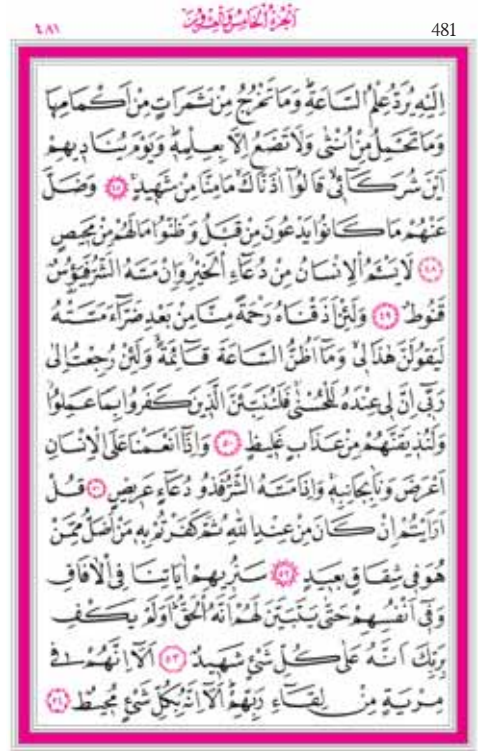 ٤٨١ اَلْجُزْءُ الْخَامِسُ وَالْعِشْرُونَ 481
اِلَيْهِ يُرَدُّ عِلْمُ السَّاعَةِۜ وَمَا تَخْرُجُ مِنْ ثَمَرَاتٍ مِنْ اَكْمَامِهَا
وَمَا تَحْمِلُ مِنْ اُنْثٰى وَلَا تَضَعُ اِلَّا بِعِلْمِه۪ۜ وَيَوْمَ يُنَاد۪يهِمْ
اَيْنَ شُرَكَٓائ۪يۙ قَالُٓوا اٰذَنَّاكَۙ مَا مِنَّا مِنْ شَه۪يدٍۚ ﴿٤٧﴾ وَضَلَّ
عَنْهُمْ مَا كَانُوا يَدْعُونَ مِنْ قَبْلُ وَظَنُّوا مَا لَهُمْ مِنْ مَح۪يصٍ
﴿٤٨﴾ لَا يَسْـَٔمُ الْاِنْسَانُ مِنْ دُعَٓاءِ الْخَيْرِۘ وَاِنْ مَسَّهُ الشَّرُّ فَيَؤُ۫سٌ
قَنُوطٌ ﴿٤٩﴾ وَلَئِنْ اَذَقْنَاهُ رَحْمَةً مِنَّا مِنْ بَعْدِ ضَرَّٓاءَ مَسَّتْهُ
لَيَقُولَنَّ هٰذَا ل۪يۙ وَمَٓا اَظُنُّ السَّاعَةَ قَٓائِمَةًۙ وَلَئِنْ رُجِعْتُ اِلٰى
رَبّ۪ٓي اِنَّ ل۪ي عِنْدَهُ لَلْحُسْنٰىۚ فَلَنُنَبِّئَنَّ الَّذ۪ينَ كَفَرُوا بِمَا عَمِلُواۘ
وَلَنُذ۪يقَنَّهُمْ مِنْ عَذَابٍ غَل۪يظٍ ﴿٥٠﴾ وَاِذَٓا اَنْعَمْنَا عَلَى الْاِنْسَانِ
اَعْرَضَ وَنَاٰ بِجَانِبِه۪ۚ وَاِذَا مَسَّهُ الشَّرُّ فَذُو دُعَٓاءٍ عَر۪يضٍ ﴿٥١﴾ قُلْ
اَرَاَيْتُمْ اِنْ كَانَ مِنْ عِنْدِ اللّٰهِ ثُمَّ كَفَرْتُمْ بِه۪ مَنْ اَضَلُّ مِمَّنْ
هُوَ ف۪ي شِقَاقٍ بَع۪يدٍ ﴿٥٢﴾ سَنُر۪يهِمْ اٰيَاتِنَا فِي الْاٰفَاقِ
وَف۪ٓي اَنْفُسِهِمْ حَتّٰى يَتَبَيَّنَ لَهُمْ اَنَّهُ الْحَقُّۜ اَوَلَمْ يَكْفِ
بِرَبِّكَ اَنَّهُ عَلٰى كُلِّ شَيْءٍ شَه۪يدٌ ﴿٥٣﴾ اَلَٓا اِنَّهُمْ ف۪ي
مِرْيَةٍ مِنْ لِقَٓاءِ رَبِّهِمْۜ اَلَٓا اِنَّهُ بِكُلِّ شَيْءٍ مُح۪يطٌ ﴿٥٤﴾